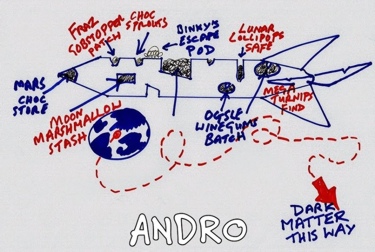 FRAZ
GOBSTOPPER
PATCH
CHOC
SPROUTS
BINKY'S
ESCAPE
POD
LUNAR
LOLLIPOPS
SAFE
MARS
CHOC
STORE
MOON
MARSHMALLOW
STASH
OGSLE
WINEGUMS
BATCH
MEGA
TURNIPS
FIND
DARK
MATTER
THIS WAY
ANDRO